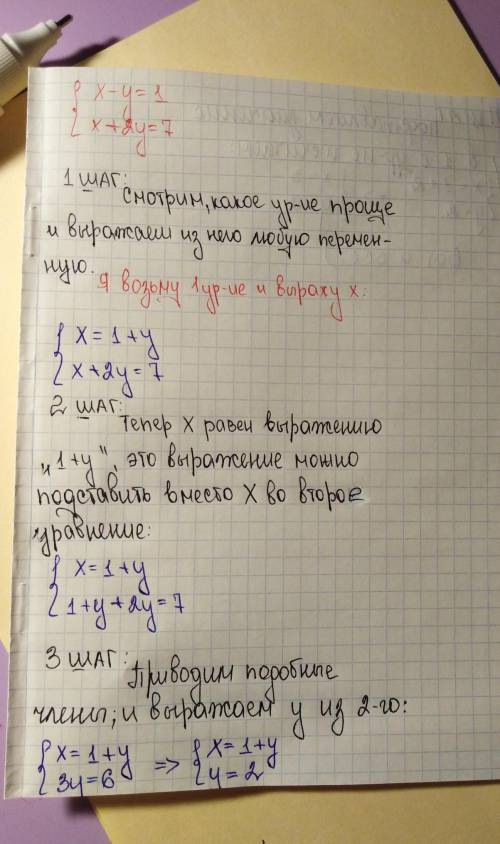 { x-y=1
{ x+2y=7
1 ШАГ:
Смотрим, какое ур-ие проще
и выражаем из него любую перемен-
ную.
Я возьму 1 ур-ие и выражу x:
{ x=1+y
{ x+2y=7
2 ШАГ:
Тепер X равен выражению
„1+y", это выражение можно
подставить вместо X во второе
уравнение:
{ x=1+y
{ 1+y+2y=7
3 ШАГ:
Приводим подобные
члены; и выражаем y из 2-го:
{ x=1+y => { x=1+y
{ 3y=6 { y=2